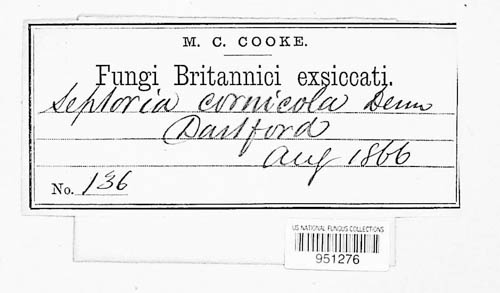 M. C. COOKE.
Fungi Britannici exsiccati.
Septoria cornicola Desm
Dartford
Aug 1866
No. 136
US NATIONAL FUNGUS COLLECTIONS
951276